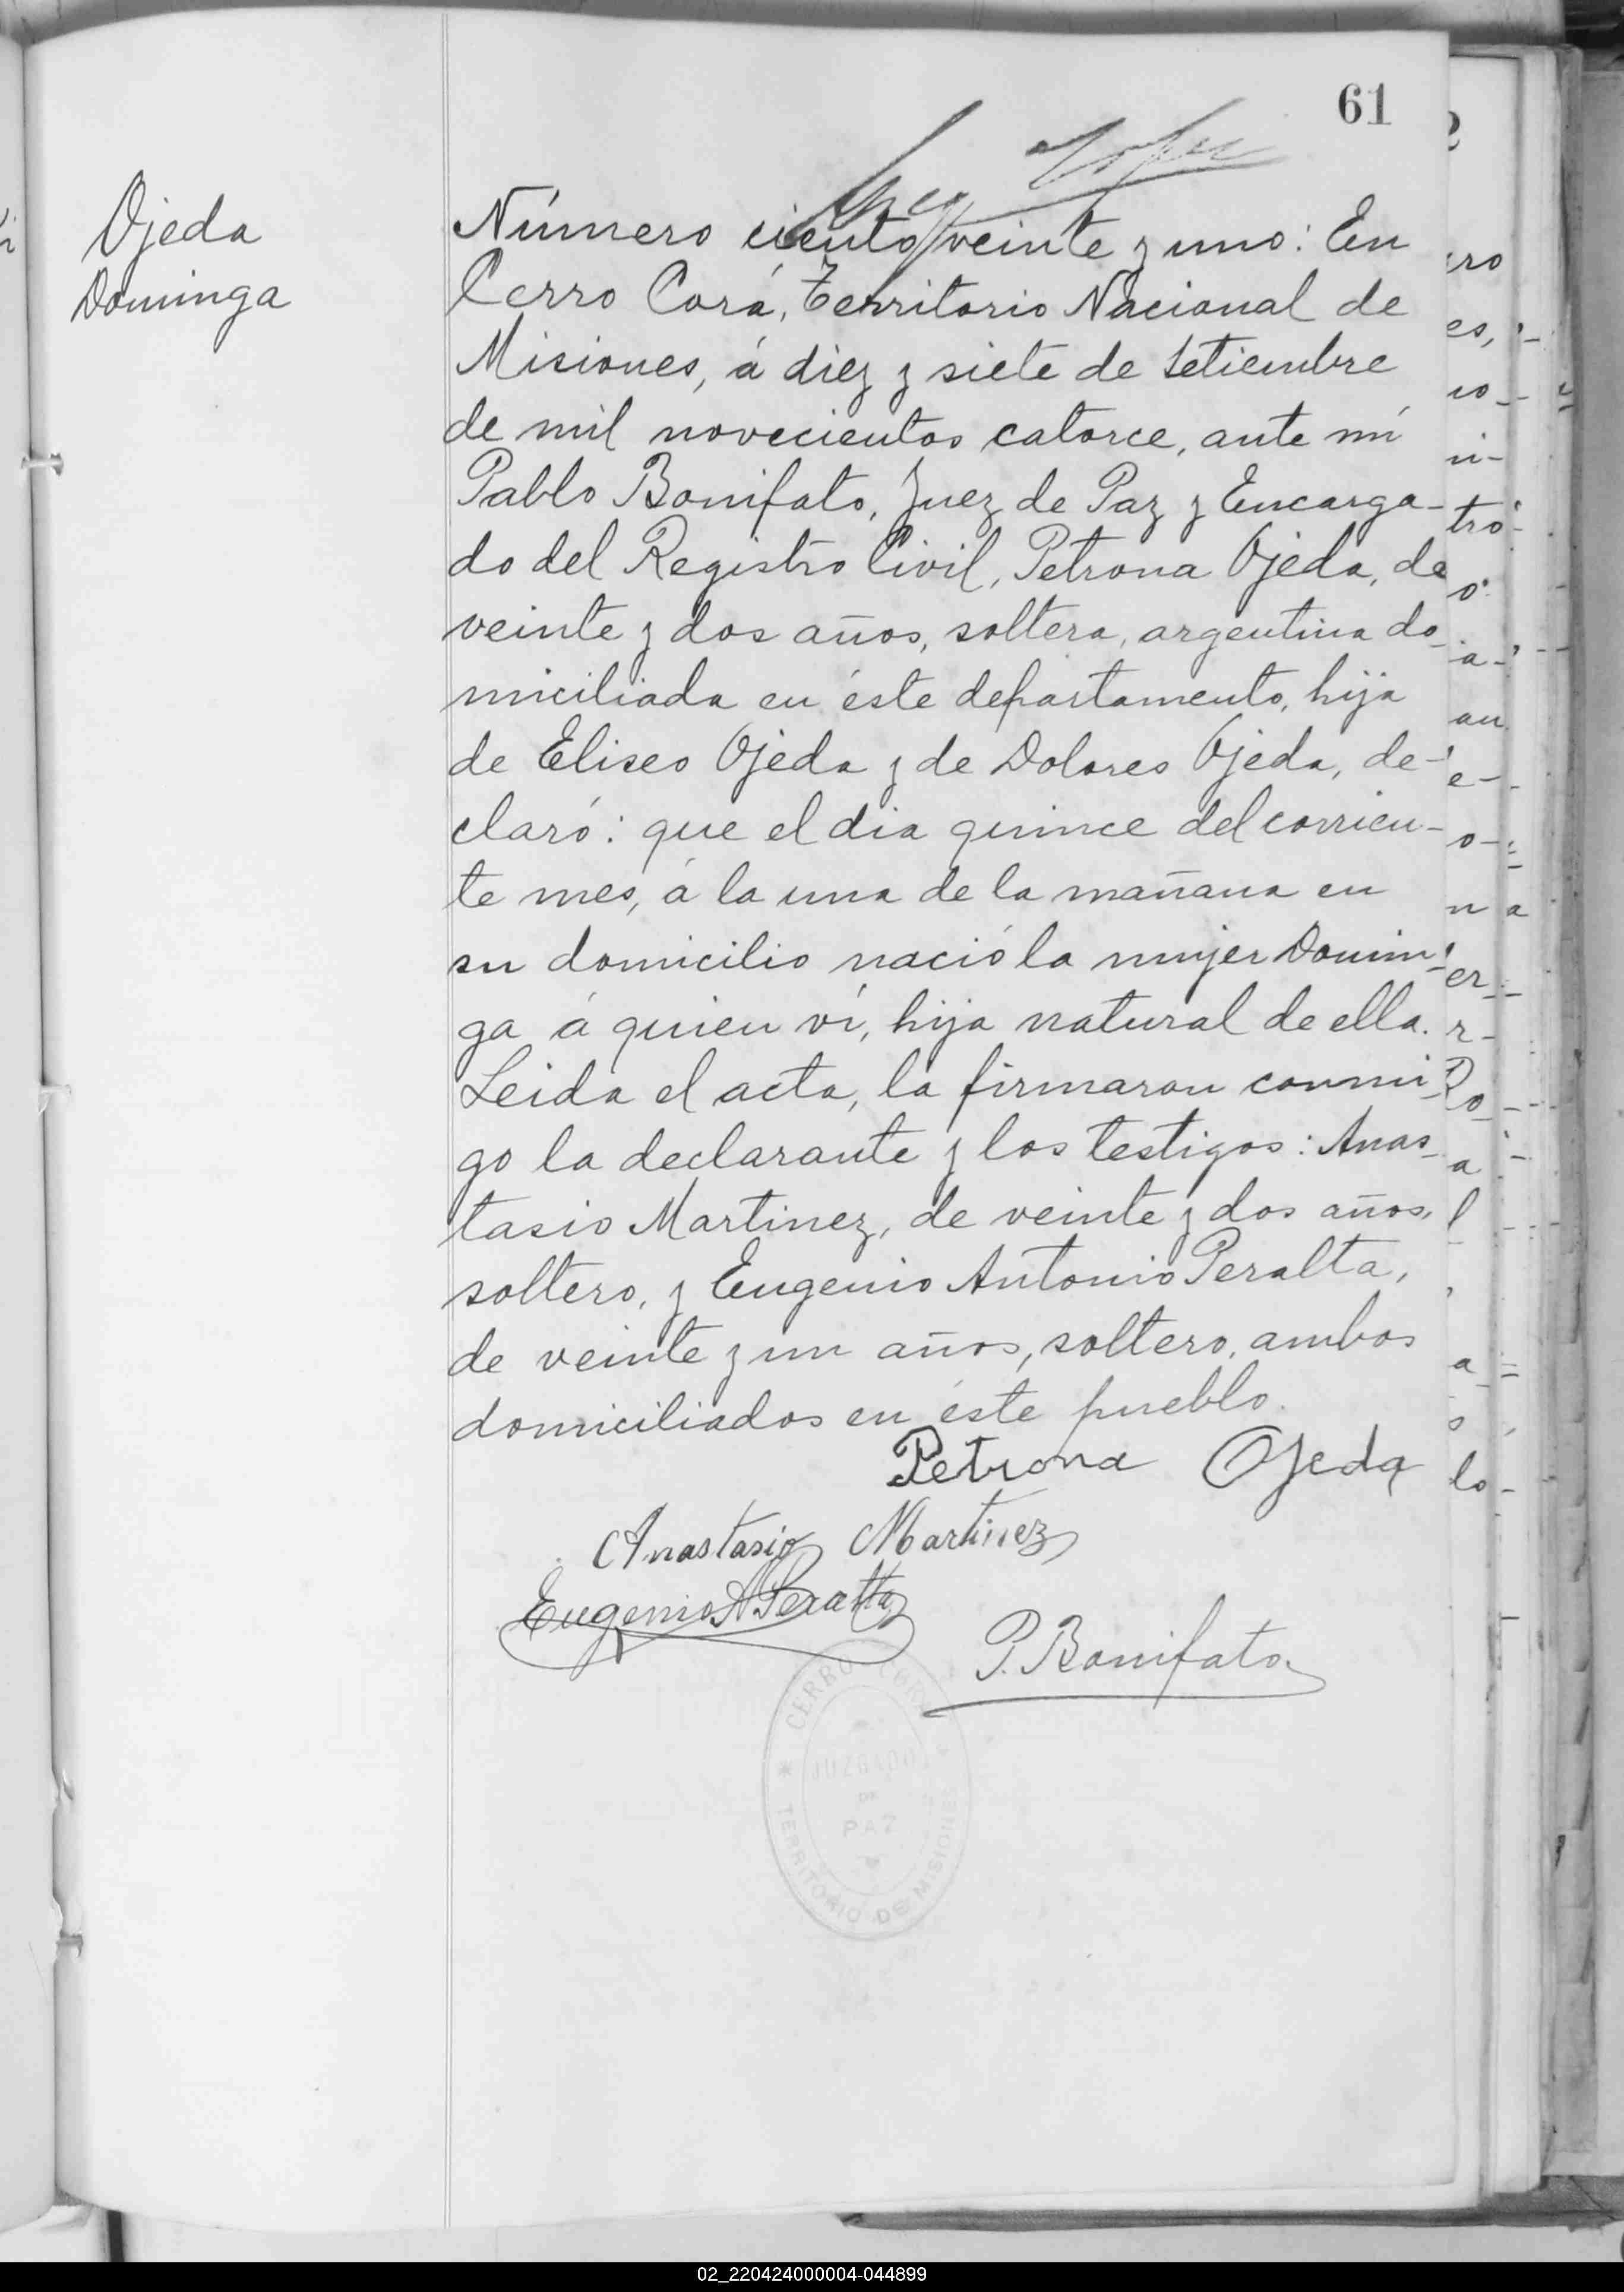 61
Ojeda
Dominga
Número ciento veinte y uno: En
Cerro Corá, Territorio Nacional de
Misiones, á diez y siete de Setiembre
de mil novecientos catorce, ante mí
Pablo Bonifato, Juez de Paz y Encarga-
do del Registro Civil, Petrona Ojeda, de
veinte y dos años, soltera, argentina do-
miciliada en éste departamento, hija
de Eliseo Ojeda y de Dolores Ojeda, de-
claró: que el dia quince del corrien-
te mes, á la una de la mañana en
su domicilio nació la mujer Domin-
ga á quien ví, hija natural de ella.
Leida el acta, la firmaron conmi-
go la declarante y los testigos: Anas-
tasio Martinez, de veinte y dos años,
soltero, y Eugenio Antonio Peralta,
de veinte y un años, soltero, ambos
domiciliados en éste pueblo.
Petrona Ojeda
Anastasio Martinez
Eugenio A Peralta
P. Bonifato
CERRO CORÁ
JUZGADO
DE
PAZ
TERRITORIO DE MISIONES
02_220424000004-044899